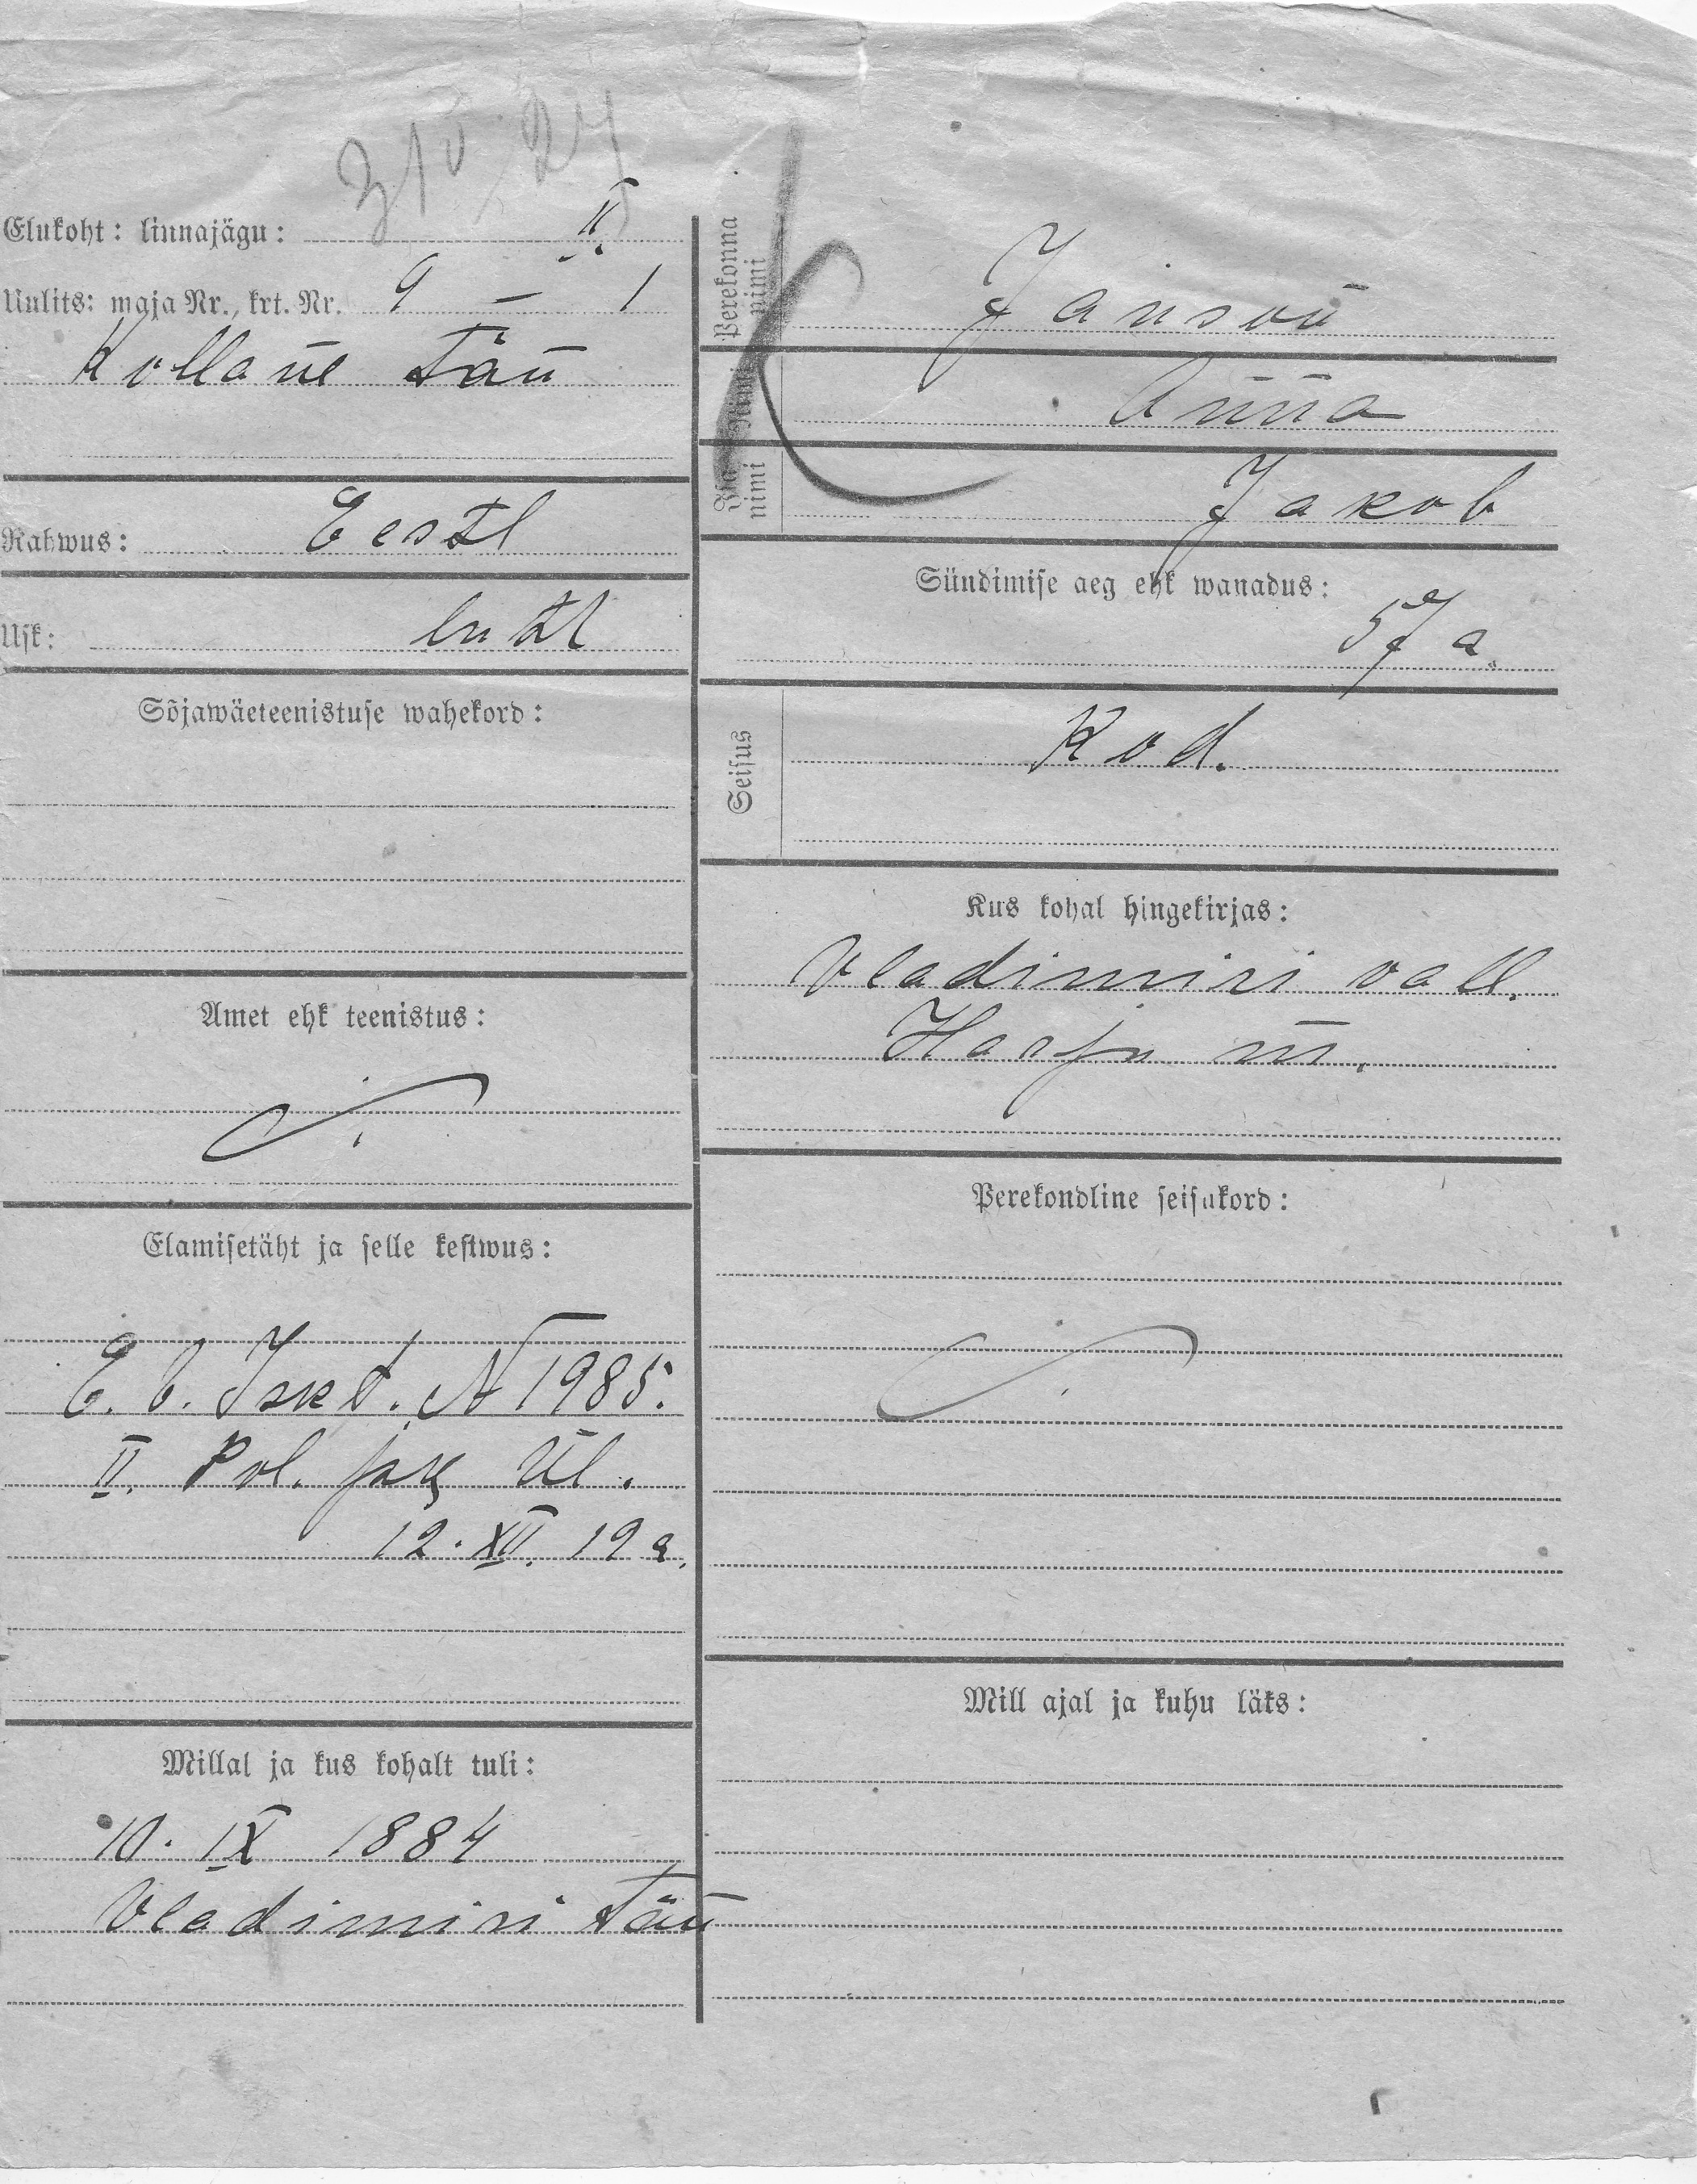 31 V 27
Elukoht: linnajägu: II.
Uulits: maja Nr., krt. Nr. 9 – 1
Kollane tän
Rahwus: Eestl
Usk: lutl
Sõjawäeteenistuse wahekord:
Amet ehk teenistus:
Elamisetäht ja selle kestwus:
E. V. Iskt. N 1985.
II. Pol. jsk Ül.
12. XII. 19 a.
Millal ja kus kohalt tuli:
10. IX 1884
Vladimiri tän
Perekonna nimi Janson
Nimi Anna
Isa nimi Jakob
Sündimise aeg ehk wanadus:
57 a.
Seisus Kod.
Kus kohal hingekirjas:
Vladimiri vall.
Harju m.
Perekondline seisukord:
Mill ajal ja kuhu läks: